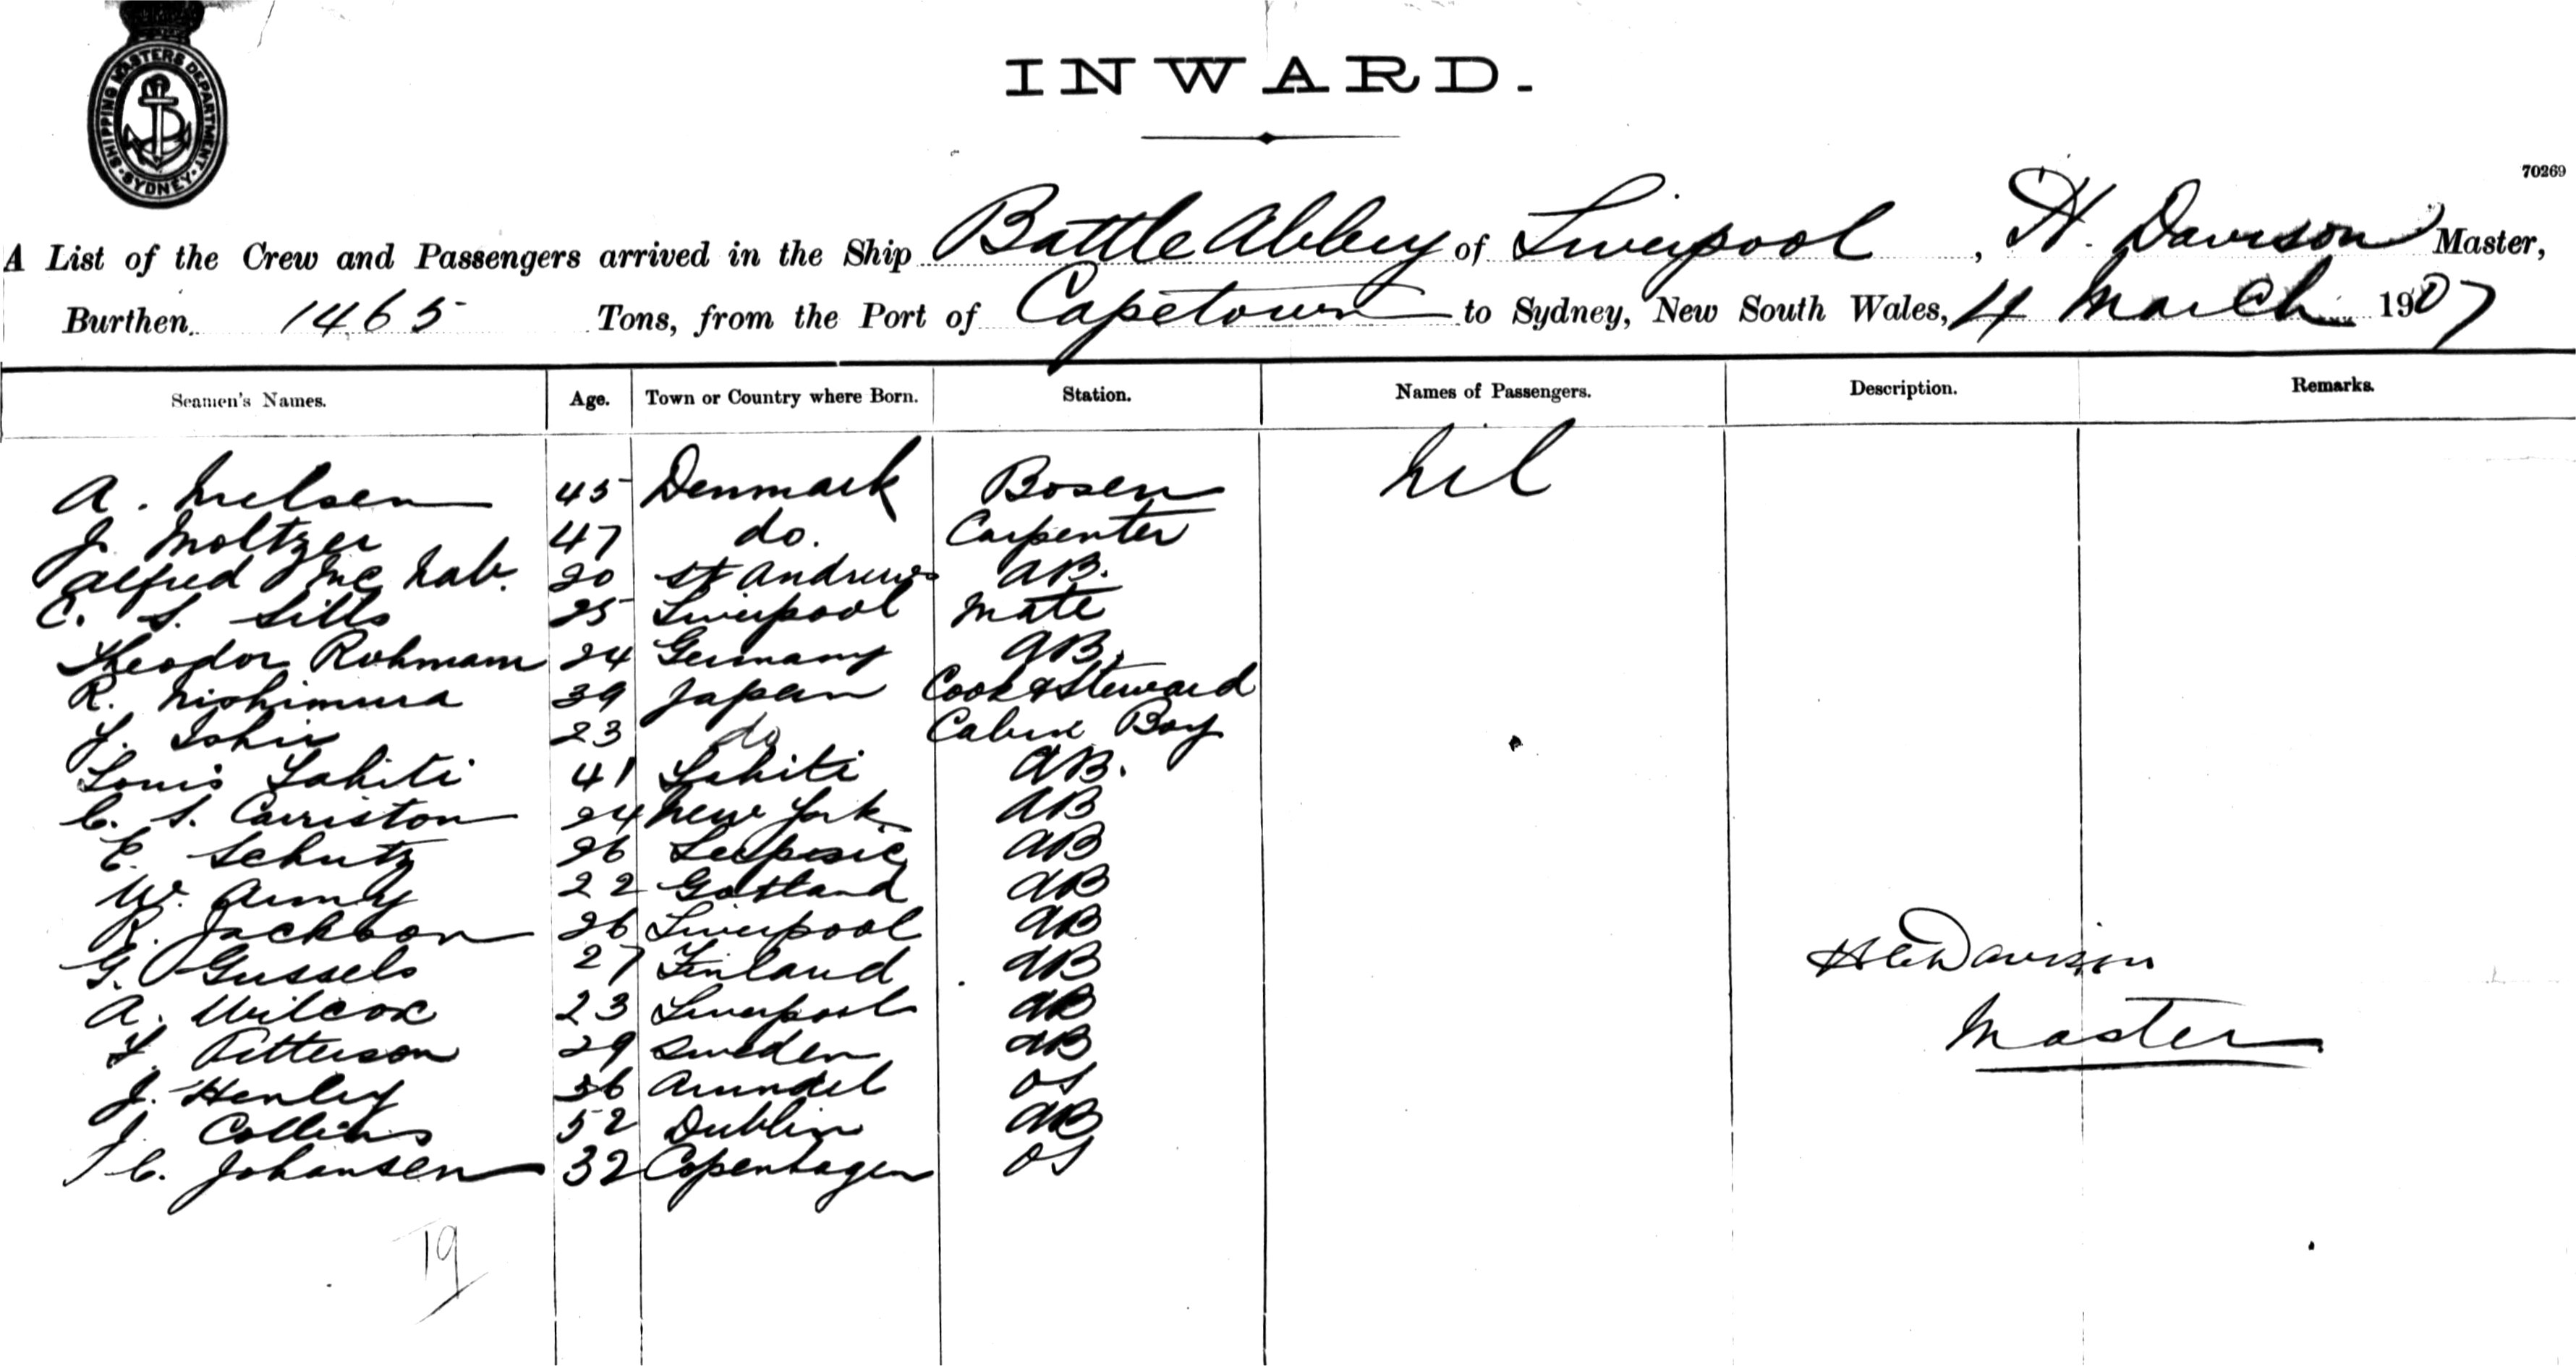 SHIPPING MASTERS DEPARTMENT · SYDNEY ·
INWARD.
70269
A List of the Crew and Passengers arrived in the Ship Battle Abbey of Liverpool, H. Davison Master,
Burthen 1465 Tons, from the Port of Capetown to Sydney, New South Wales, 4 March 1907
Seamen's Names. Age. Town or Country where Born. Station. Names of Passengers. Description. Remarks.
A. Nielsen 45 Denmark Bosen nil
J. Moltzer 47 do. Carpenter
Alfred McNab. 20 St Andrews AB.
C. S. Sills 25 Liverpool Mate
Theodor Rohmann 24 Germany AB.
R. Nishimura 39 Japan Cook & Steward
Y. Ishii 23 do Cabin Boy
Louis Tahiti 41 Tahiti AB.
C. S. Carriston 24 New York AB
E. Schutz 26 Leipsic AB
W. 22 Gotland AB
R. Jackson 26 Liverpool AB
G. Gussels 27 Finland AB
A. Wilcox 23 Liverpool AB
F. Petterson 29 Sweden AB
J. Henley 36 Arundel OS
J. Collins 52 Dublin AB
C. Johansen 32 Copenhagen OS
Davison
Master
19